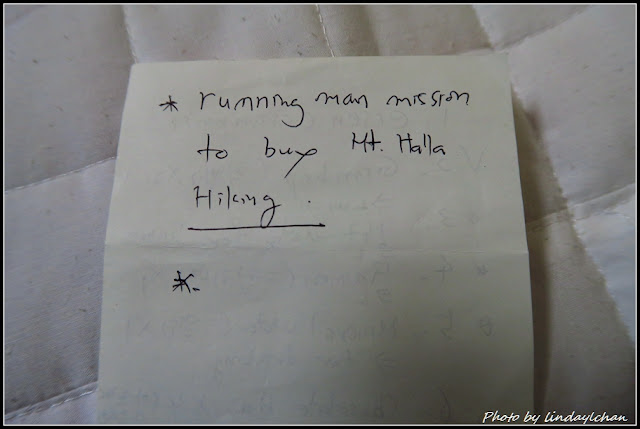 * running man mission
to buy Mt. Halla
Hiking.
*.
Photo by lindaylchan